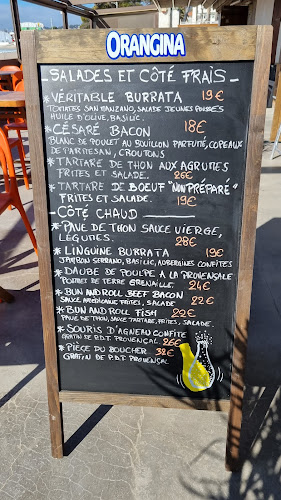 ORANGINA
SALADES ET CÔTÉ FRAIS
* VÉRITABLE BURRATA 19€
TOMATES SAN MANZANO, SALADE JEUNES POUSSES
HUILE D'OLIVE, BASILIC.
* CÉSARÉ BACON 18€
BLANC DE POULET AU BOUILLON PARFUMÉ, COPEAUX
DE PARMESAN, CROUTONS
* TARTARE DE THON AUX AGRUMES
FRITES ET SALADE. 26€
* TARTARE DE BOEUF "NON PRÉPARÉ"
FRITES ET SALADE. 19€
- CÔTÉ CHAUD
* PAVE DE THON SAUCE VIERGE,
LÉGUMES. 28€
* LINGUINE BURRATA 19€
JAMBON SERRANO, BASILIC, AUBERGINES CONFITES
* DAUBE DE POULPE A LA PROVENÇALE
POMMES DE TERRE GRENAILLE. 24€
* BUN AND ROLL BEEF BACON
SAUCE AMERICAINE FRITES, SALADE 22€
* BUN AND ROLL FISH 22€
PAVE DE THON, SAUCE TARTARE, FRITES, SALADE
* SOURIS D'AGNEAU CONFITE
GRATIN DE P.D.T PROVENÇAL 26€
* PIÈCE DU BOUCHER 32€
GRATIN DE P.D.T PROVENÇAL